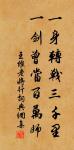 一身轉戰三千里
一劍曾當百萬師
王維老將行詞典網書